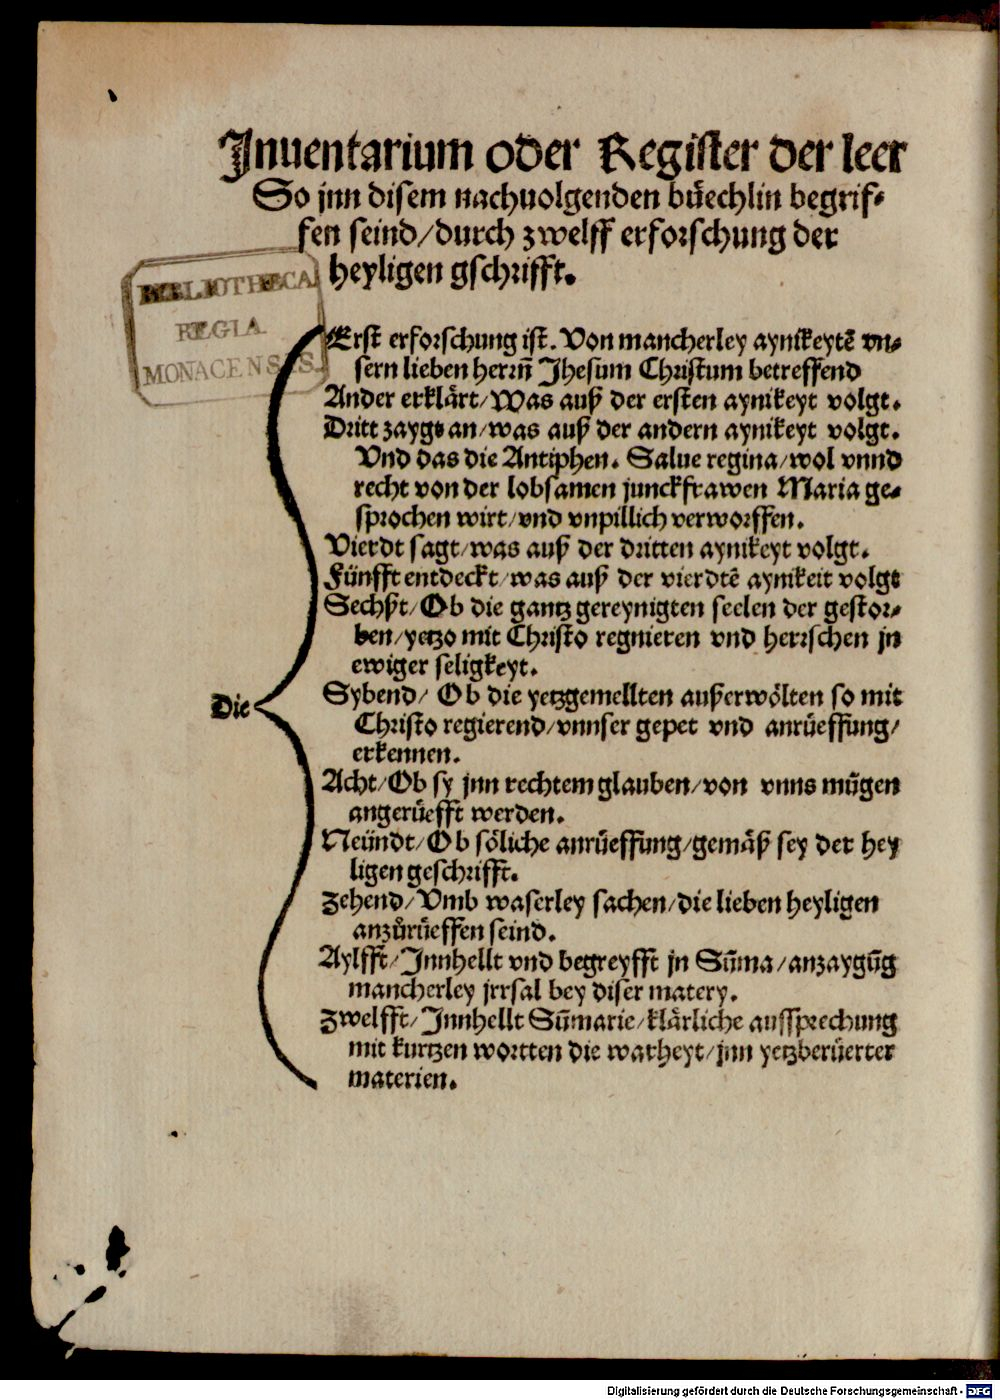 Jnuentarium oder Register der leer
So jnn disem nachuolgenden büechlin begrif⸗
fen seind/durch zwelff erforschung der
heyligen gschrifft.
BIBLIOTHECA
REGIA
MONACENSIS.
Die
Erst erforschung ist. Von mancherley aynikeytē vn⸗
sern lieben herrn̄ Jhesum Christum betreffend
Ander erklärt/Was auß der ersten aynikeyt volgt.
Dritt zaygt an/was auß der andern aynikeyt volgt.
Vnd das die Antiphen. Salue regina/wol vnnd
recht von der lobsamen junckfrawen Maria ge⸗
sprochen wirt/vnd vnpillich verworffen.
Vierdt sagt/was auß der dritten aynikeyt volgt.
Fünfft entdeckt/was auß der vierdtē aynikeit volgt
Sechßt/Ob die gantz gereynigten seelen der gestor⸗
ben/yetzo mit Christo regnieren vnd herrschen jn
ewiger seligkeyt.
Sybend/ Ob die yetzgemellten außerwölten so mit
Christo regierend/vnnser gepet vnd anrüeffung/
erkennen.
Acht/Ob sy jnn rechtem glauben/von vnns mügen
angerüefft werden.
Neündt/Ob söliche anrüeffung/gemäß sey der hey
ligen geschrifft.
Zehend/Vmb waserley sachen/die lieben heyligen
anzůrüeffen seind.
Aylfft/Jnnhellt vnd begreyfft jn Sum̄a/anzaygūg
mancherley jrrsal bey diser matery.
Zwelfft/Jnnhellt Sum̄arie/klärliche aussprechung
mit kurtzen wortten die warheyt/jnn yetzberüerter
materien.
Digitalisierung gefördert durch die Deutsche Forschungsgemeinschaft - DFG